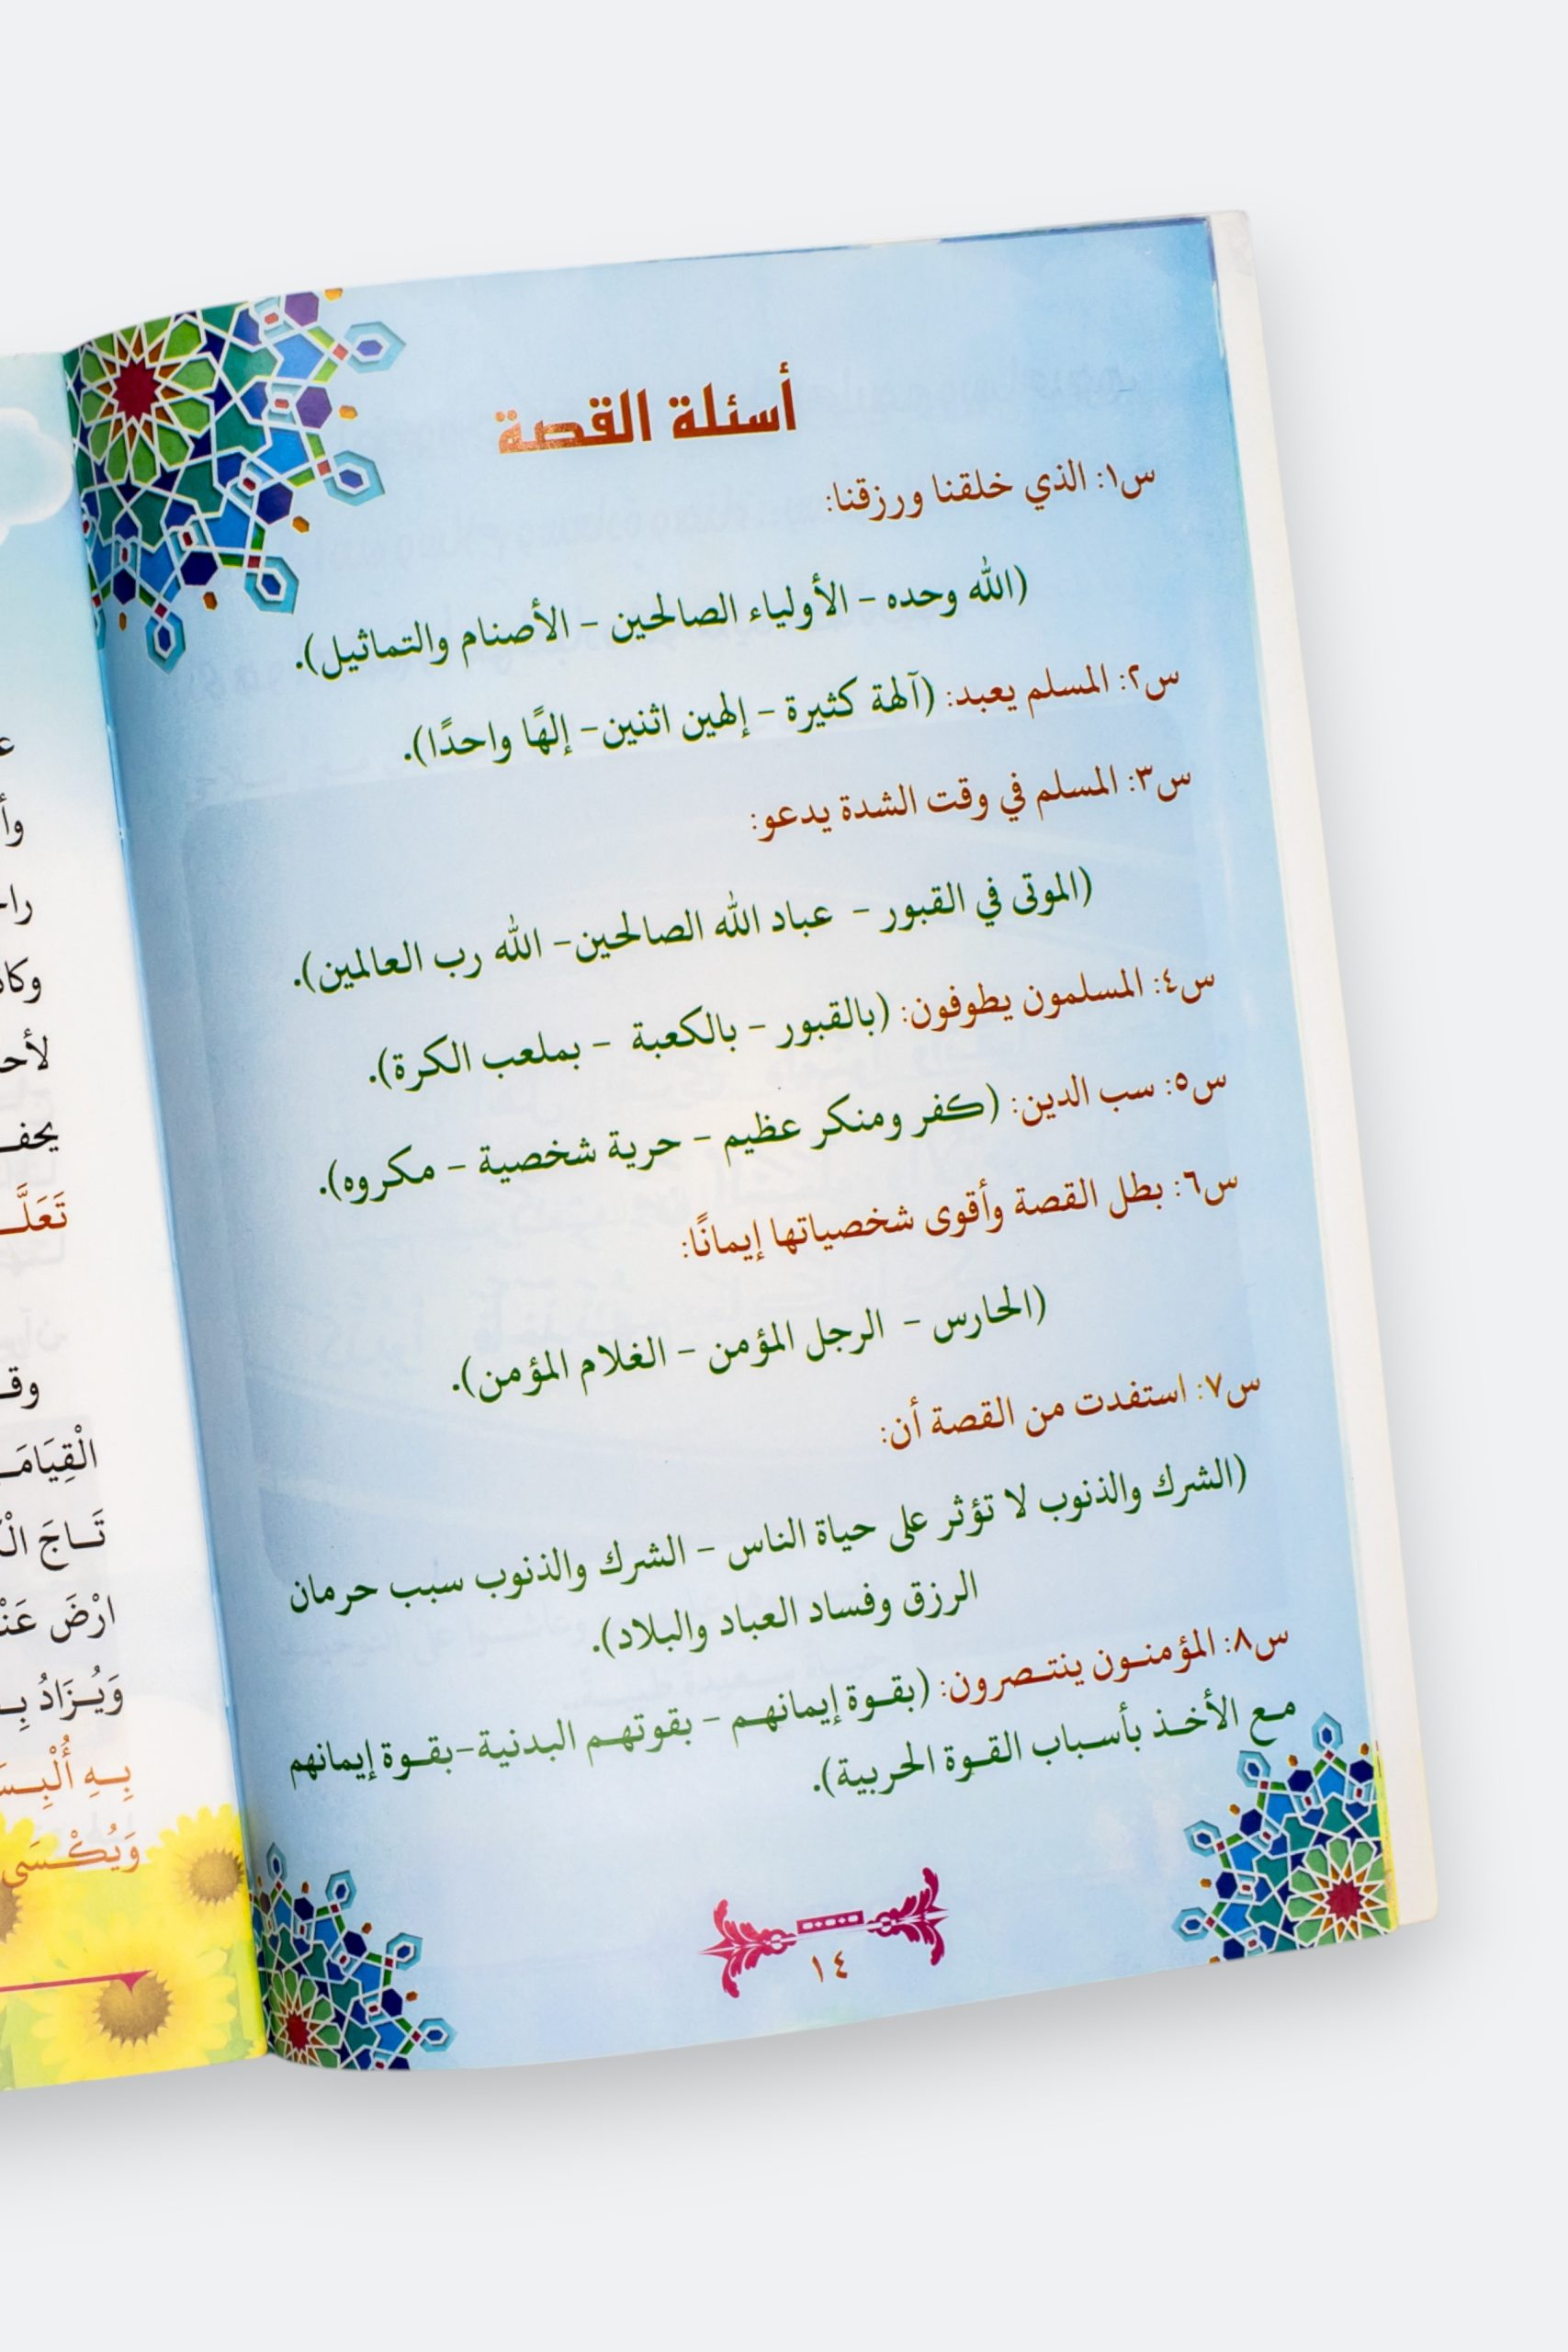 أسئلة القصة
س١: الذي خلقنا ورزقنا:
(الله وحده - الأولياء الصالحين - الأصنام والتماثيل).
س٢: المسلم يعبد: (آلهة كثيرة - إلهين اثنين- إلهًا واحدًا).
س٣: المسلم في وقت الشدة يدعو:
(الموتى في القبور - عباد الله الصالحين- الله رب العالمين).
س٤: المسلمون يطوفون: (بالقبور - بالكعبة - بملعب الكرة).
س٥: سب الدين: (كفر ومنكر عظيم - حرية شخصية - مكروه).
س٦: بطل القصة وأقوى شخصياتها إيمانًا:
(الحارس - الرجل المؤمن - الغلام المؤمن).
س٧: استفدت من القصة أن:
(الشرك والذنوب لا تؤثر على حياة الناس - الشرك والذنوب سبب حرمان
الرزق وفساد العباد والبلاد).
س٨: المؤمنون ينتصرون: (بقوة إيمانهم - بقوتهم البدنية-بقوة إيمانهم
مع الأخذ بأسباب القوة الحربية).
١٤
ارْضَ
وَيُزَادُ
بِهِ
وَيُكْسَى